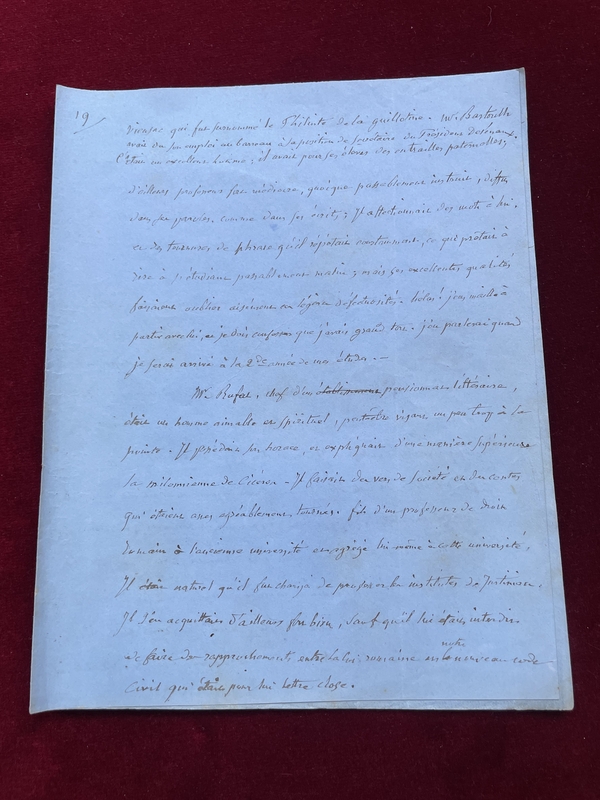 19
qui fut surnommé le Philinte de la guillotine. Mr Barteuilh
avait du son emploi au barreau à sa position de secrétaire du Président
C'était un excellent homme; il avait pour ses élèves des entrailles paternelles;
d'ailleurs professeur fort médiocre, quoique passablement instruit, diffus
dans ses paroles, comme dans ses écrits; Il affectionnait des mots à lui,
et des tournures de phrase qu'il répétait constamment, ce qui prêtait à
rire à l'étudiant passablement malin; mais ses excellentes qualités
faisaient oublier aisément ces légères défectuosités. hélas! j'eus maille à
partir avec lui, et je dois confesser que j'avais grand tort. j'en parlerai quand
je serai arrivé à la 2de année de mes études. —
Mr Rufat, chef d'un établissement pensionnat littéraire,
était un homme aimable et spirituel, peut-être visant un peu trop à la
pointe. Il possédait son horace, et expliquait d'une manière supérieure
la milonienne de Cicéron. Il faisait des vers de société et des contes
qui étaient assez agréablement tournés. fils d'un professeur de droit
romain à l'ancienne université et agrégé lui même à cette université,
Il était naturel qu'il fut chargé de professer les institutes de Justinien.
Il s'en acquittait d'ailleurs fort bien, sauf qu'il lui était interdit
de faire des rapprochements entre la loi romaine et notre nouveau code
Civil qui était pour lui lettre close.